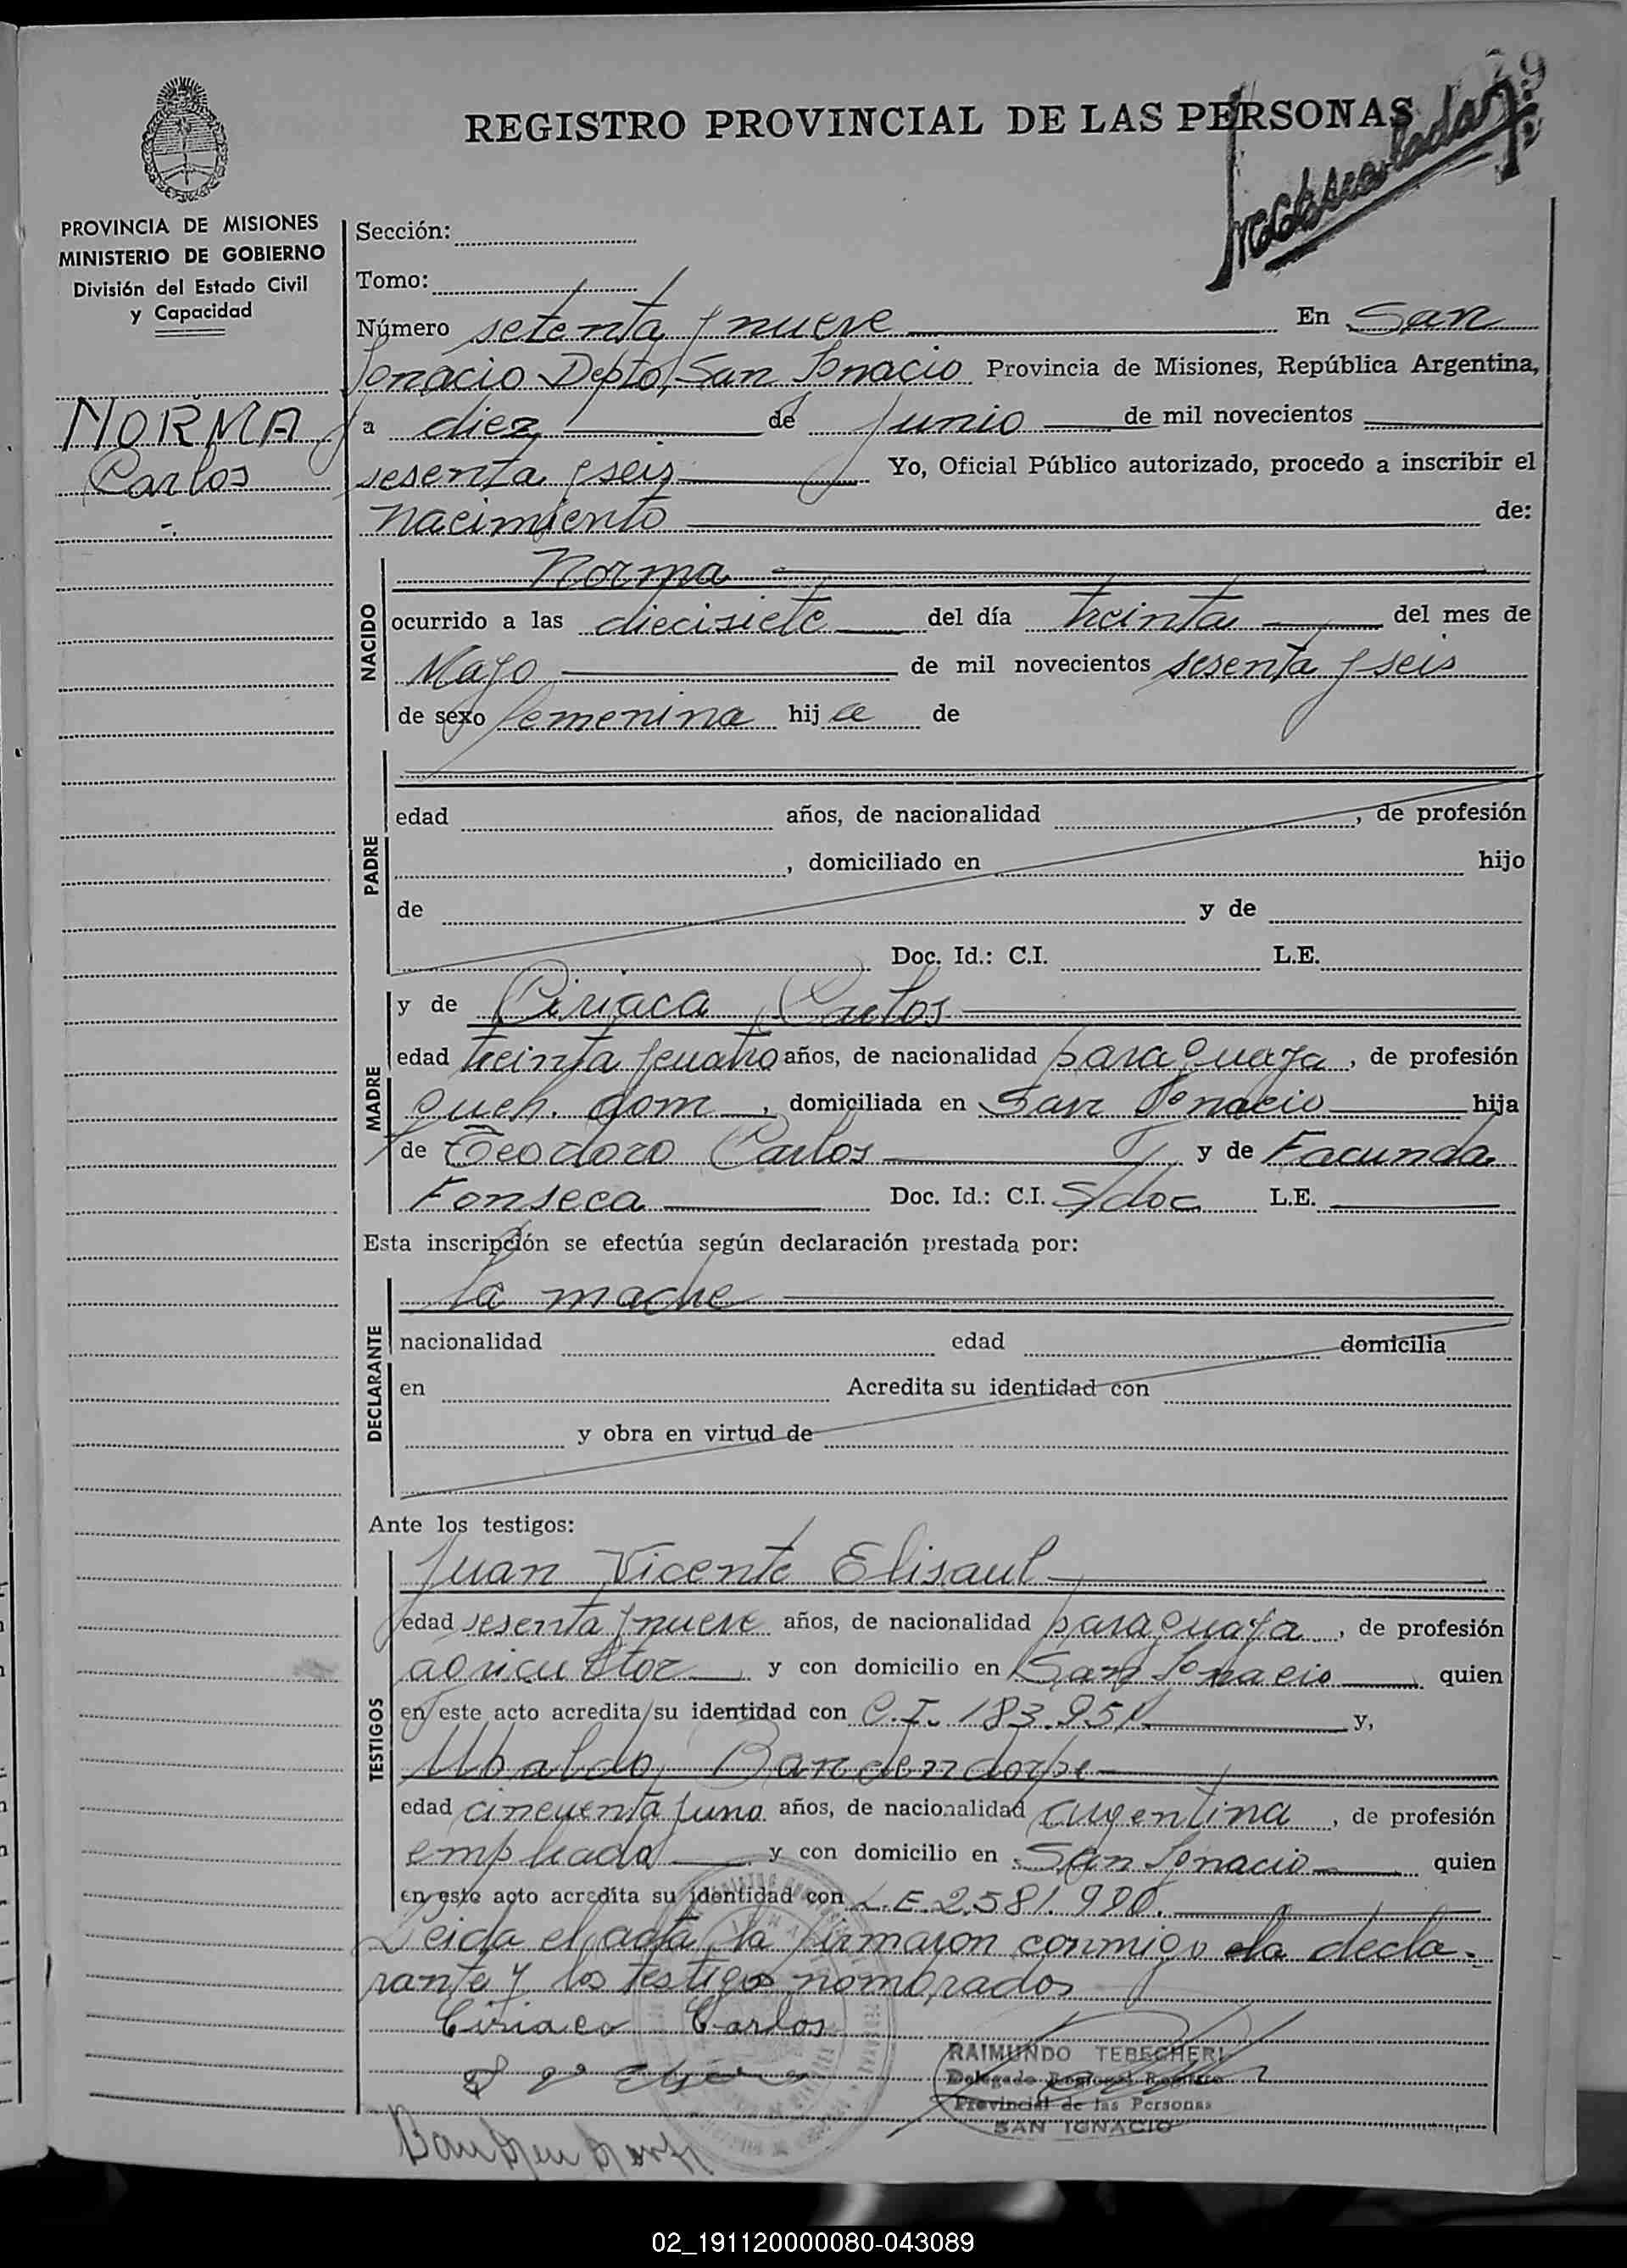 79
REGISTRO PROVINCIAL DE LAS PERSONAS
PROVINCIA DE MISIONES
MINISTERIO DE GOBIERNO
División del Estado Civil
y Capacidad
NORMA
Carlos
Sección:
Tomo:
Número setenta y nueve En San
Ignacio Depto. San Ignacio Provincia de Misiones, República Argentina,
a diez de Junio de mil novecientos
sesenta y seis Yo, Oficial Público autorizado, procedo a inscribir el
nacimiento de:
NACIDO
Norma
ocurrido a las diecisiete del día treinta del mes de
Mayo de mil novecientos sesenta y seis
de sexo femenina hija de
PADRE
edad años, de nacionalidad , de profesión
, domiciliado en hijo
de y de
Doc. Id.: C.I. L.E.
MADRE
y de Ciriaca Carlos
edad treinta y cuatro años, de nacionalidad paraguaya, de profesión
queh. dom, domiciliada en San Ignacio hija
de Teodoro Carlos y de Facunda
Fonseca Doc. Id.: C.I. S/doc L.E.
Esta inscripción se efectúa según declaración prestada por:
DECLARANTE
la madre
nacionalidad edad domicilia
en Acredita su identidad con
y obra en virtud de
Ante los testigos:
TESTIGOS
Juan Vicente Elisaul
edad sesenta y nueve años, de nacionalidad paraguaya, de profesión
agricultor y con domicilio en San Ignacio quien
en este acto acredita su identidad con C.I. y,
Ubaldo
edad cincuenta y uno años, de nacionalidad argentina, de profesión
empleado y con domicilio en San Ignacio quien
en este acto acredita su identidad con L.E. 2.581.980.
Leida el acta, la firmaron conmigo la decla-
rante y los testigos nombrados
Ciriaco Carlos
RAIMUNDO TEBECHERI
Delegado Regional Registro
Provincial de las Personas
SAN IGNACIO
02_191120000080-043089